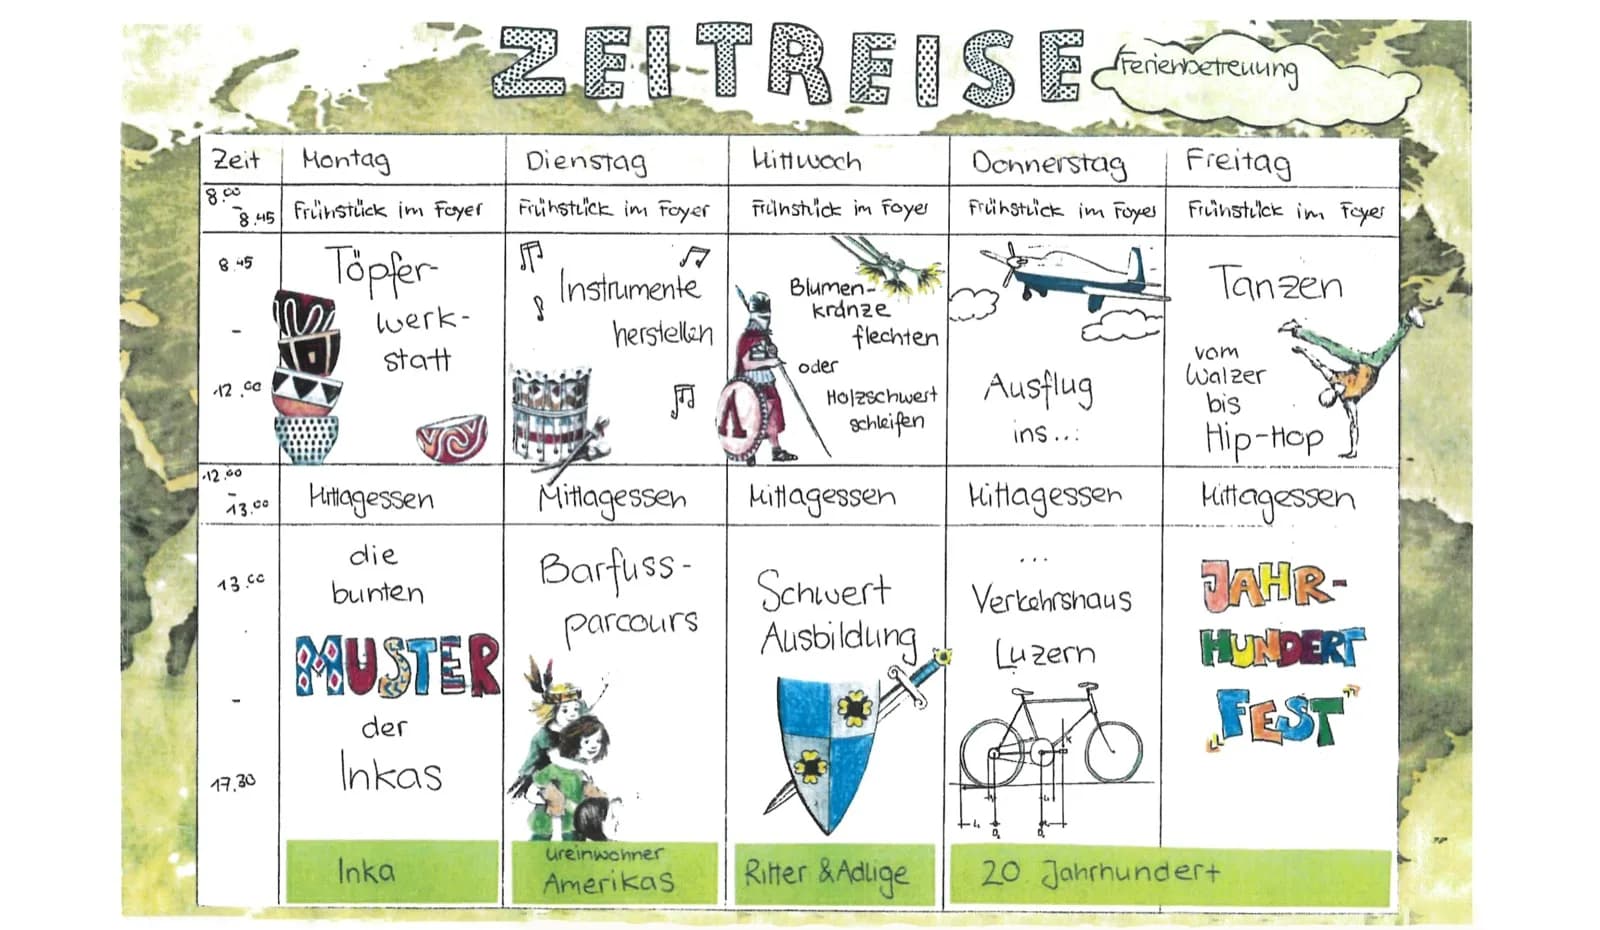 ZEITREISE
Ferienbetreuung
Zeit Montag Dienstag Mittwoch Donnerstag Freitag
8.00 - 8.45 Frühstück im Foyer Frühstück im Foyer Frühstück im Foyer Frühstück im Foyer Frühstück im Foyer
8.45
-
12.00
Töpfer-
werk-
statt
Instrumente
herstellen
Blumen-
kränze
flechten
oder
Holzschwert
schleifen
Ausflug
ins...
Tanzen
vom
Walzer
bis
Hip-Hop
12.00 - 13.00 Mittagessen Mittagessen Mittagessen Mittagessen Mittagessen
13.00
-
17.30
die
bunten
MUSTER
der
Inkas
Barfuss-
parcours
Schwert
Ausbildung
...
Verkehrshaus
Luzern
JAHR-
HUNDERT
"FEST"
Inka
Ureinwohner
Amerikas
Ritter & Adlige
20. Jahrhundert